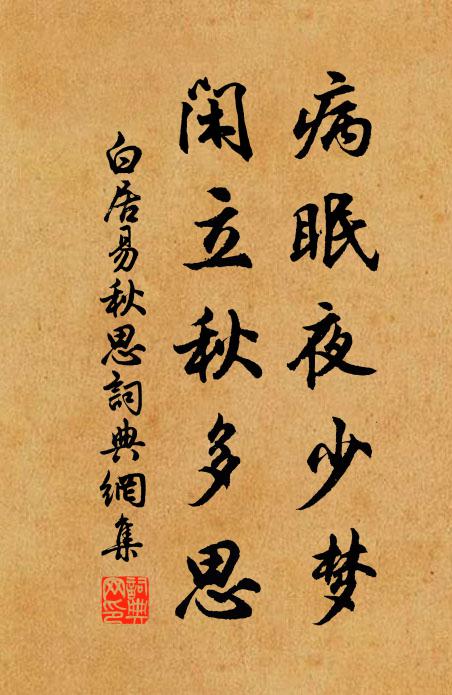 病眠夜少梦
闲立秋多思
白居易秋思詞典網集
詞典网印